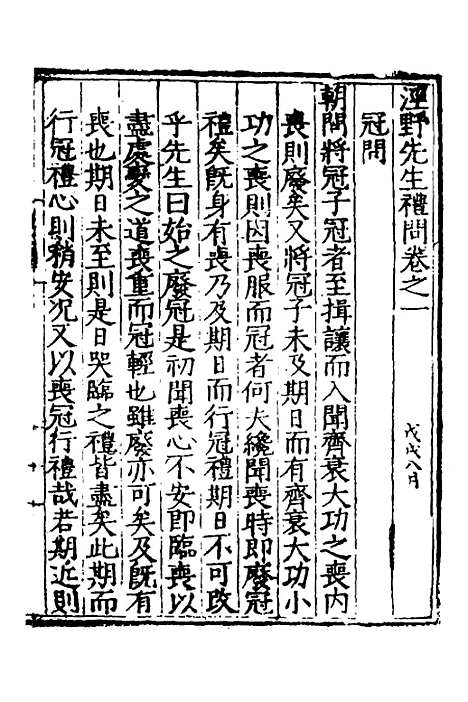 涇野先生禮問卷之一
戊戌八日
冠問
朝問將冠子冠者至揖讓而入聞齊衰大功之喪內
喪則廢矣又將冠子未及期日而有齊衰大功小
功之喪則因喪服而冠者何夫纔聞喪時即廢冠
禮矣旣身有喪乃及期日而行冠禮期日不可改
乎先生曰始之廢冠是初聞喪心不安即臨喪以
盡處變之道喪重而冠輕也雖廢亦可矣及旣有
喪也期日未至則是日哭臨之禮皆盡矣此期而
行冠禮心則稍安况又以喪冠行禮哉若期近則